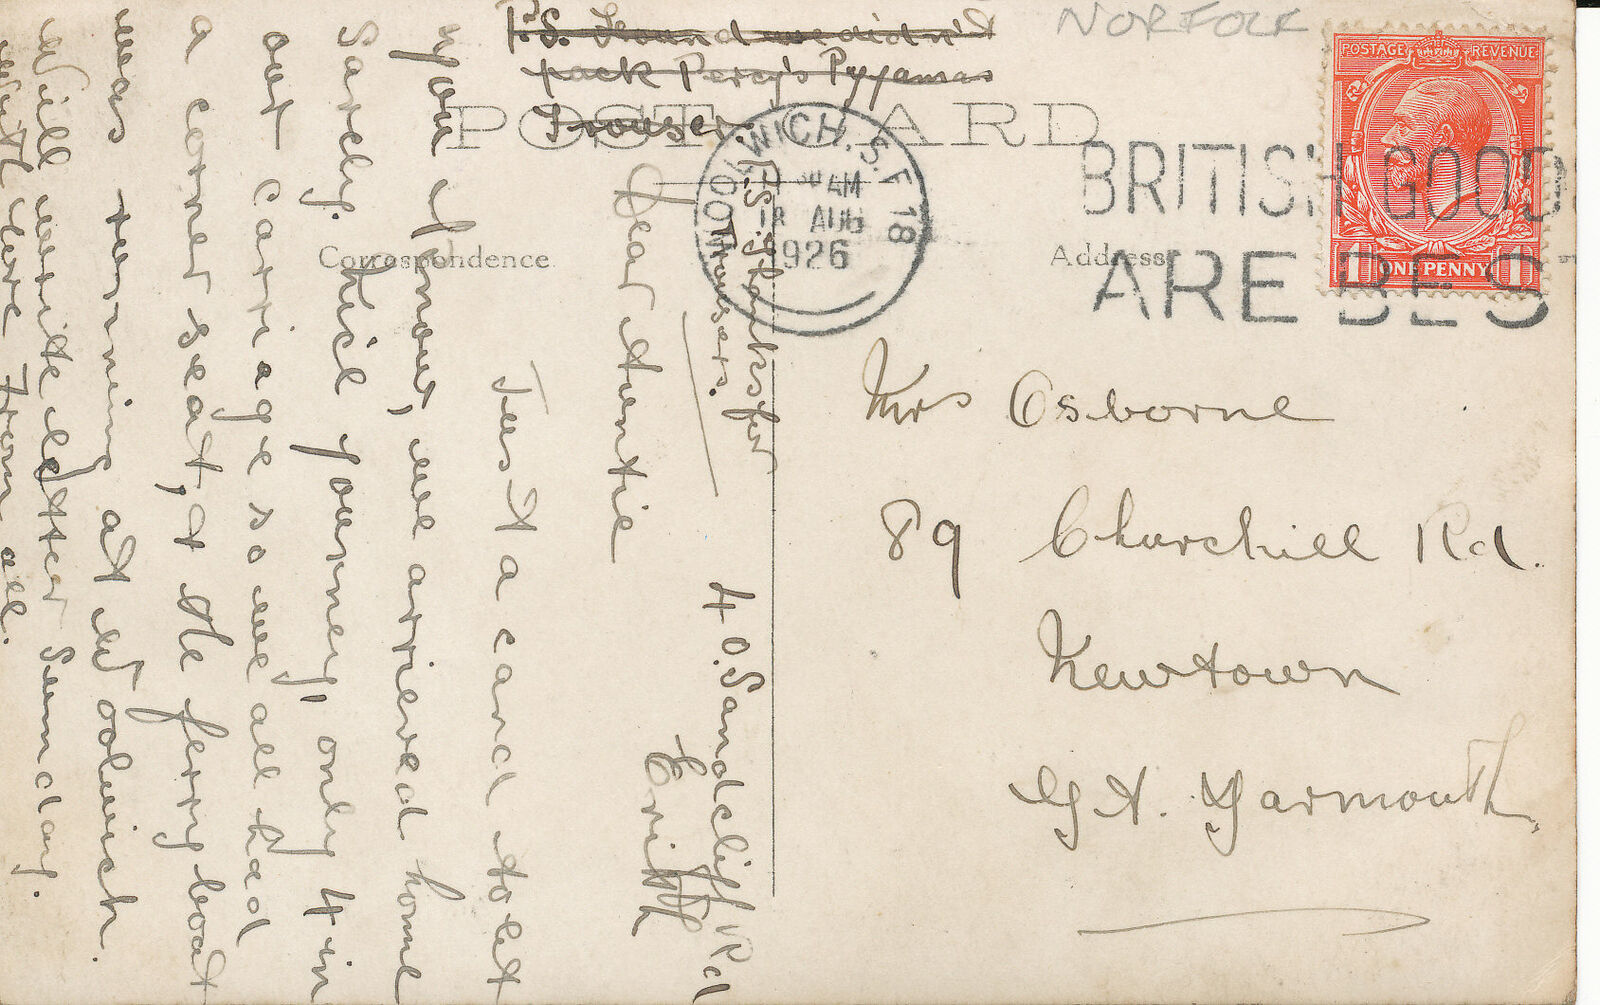 P.S. Found we didn't
pack Percy's Pyjamas
Trouser
NORFOLK
POST CARD
Correspondence
Address
WOOLWICH. S.E. 18
AM
18 AUG
1926
BRITISH GOODS
ARE BEST
POSTAGE REVENUE
1 ONE PENNY 1
P.S. Thanks for
Trousers.
40. Sandcliff Rd
Erith
Dear Auntie
Just a card to let
you know, we arrived home
safely. Nice journey, only 4 in
our carriage so we all had
a corner seat, & the ferry boat
was running at Woolwich.
Will write letter Sunday.
With love from all.
Mrs Osborne
89 Churchill Rd.
Newtown
Gt. Yarmouth.